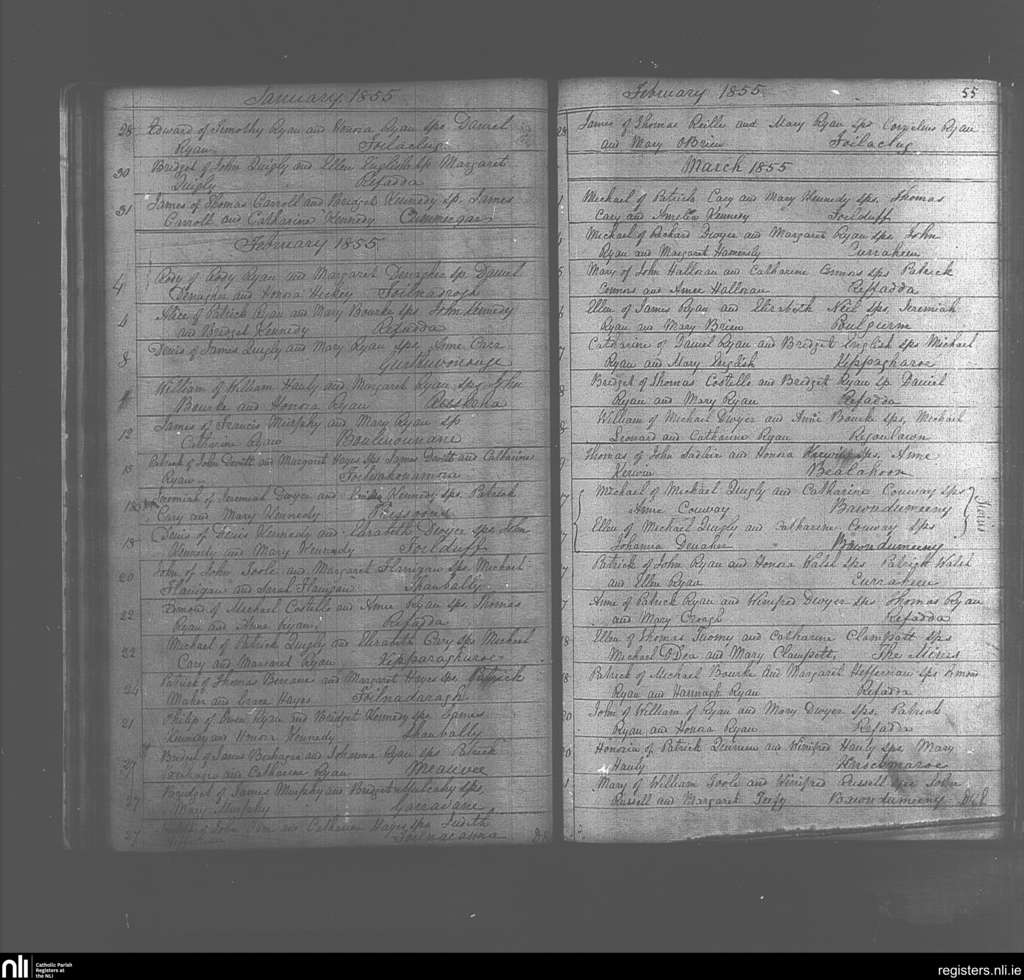 January 1855
28 Edward of Timothy Ryan and Honora Ryan sps Daniel
Ryan Foilaclug
30 Bridget of John Quigly and Ellen English sp Margaret
Quigly Refadda
31 James of Thomas Carroll and Bridget Kennedy sp. James
Carroll and Catharine Kennedy
February 1855
4 Rody of Rody Ryan and Margaret Denagher sp Daniel
Denagher and Honora Hickey
4 Alice of Patrick Ryan and Mary Bourke sps John Kennedy
and Bridget Kennedy Refadda
8 Denis of James Quigly and Mary Ryan sps, Anne Carr
William of William Hauly and Margaret Ryan sps John
Bourke and Honora Ryan
12 James of Francis Murphy and Mary Ryan sp
Catherine Ryan
15 Patrick of John Devitt and Margaret Hayes sps James Devitt and Catharine
Ryan
Jeremiah of Jeremiah Dwyer and Kennedy sps. Patrick
Cary and Mary Kennedy
18 Denis of Denis Kennedy and Elizabeth Dwyer sps John
Kennedy and Mary Kennedy Foilduff
20 John of John Toole and Margaret Flanigan sps Michael
Flanigan and Sarah Flanigan Shanbally
22 Edmond of Michael Costello and Anne Ryan sps Thomas
Ryan and Anne Ryan, Refadda
22 Michael of Patrick Quigly and Elizabeth Cary sps Michael
Cary and Margaret Ryan
24 Patrick of Thomas and Margaret Hayes sps Patrick
Maher and Grace Hayes Foilnadaragh
21 Philip of Owen Ryan and Bridget Kennedy sps James
Kennedy and Honora Kennedy Shanbally
Bridget of James and Johanna Ryan sps Patrick
and Catharine Ryan
27 Bridget of James Murphy and Bridget Mulcahy sps,
Mary Murphy Garradane
27 of John and Catharine Hayes sps Judith
February 1855 55
28 James of Thomas Reille and Mary Ryan sps Cornelius Ryan
and Mary OBrien Foilaclug
March 1855
Michael of Patrick Cary and Mary Kennedy sps, Thomas
Cary and Amelia Kennedy Foilduff
Michael of Richard Dwyer and Margaret Ryan sps John
Ryan and Margaret Hammily Curraheen
5 Mary of John Halloran and Catharine Connors sps Patrick
Connors and Anne Halloran Reffadda
6 Ellen of James Ryan and Elizabeth Niel sps, Jeremiah
Ryan and Mary Brien
7 Catharine of Daniel Ryan and Bridget English sps Michael
Ryan and Mary English Uppagharoe
8 Bridget of Thomas Costello and Bridget Ryan sp Daniel
Ryan and Mary Ryan Refadda
8 William of Michael Dwyer and Anne Bourke sps, Michael
Leonard and Catharine Ryan
9 Thomas of John Sadleir and Honora Kerwin sps. Anne
Kerwin Bealahoon
7 Michael of Michael Quigly and Catharine Conway sps
Anne Conway Bawndumeeny
7 Ellen of Michael Quigly and Catharine Conway sps
Johanna Denaher Bawndumeeny
Twins
7 Patrick of John Ryan and Honora Walsh sps Patrick Walsh
and Ellen Ryan Curraheen
7 Anne of Patrick Ryan and Winifred Dwyer sps Thomas Ryan
and Mary Creagh Refadda
8 Ellen of Thomas Twomy and Catharine Clampett sps
Michael O'Dea and Mary Clampett, The Mines
8 Patrick of Michael Bourke and Margaret Heffernan sps Edmond
Ryan and Hannagh Ryan Refadda
20 John of William of Ryan and Mary Dwyer sps, Patrick
Ryan and Honora Ryan Refadda
20 Honoria of Patrick and Winifred Hauly sps, Mary
Hauly
1 Mary of William Toole and Winifred Russell sps John
Russell and Margaret Bawndumeeny
nli Catholic Parish
Registers at
the NLI
registers.nli.ie